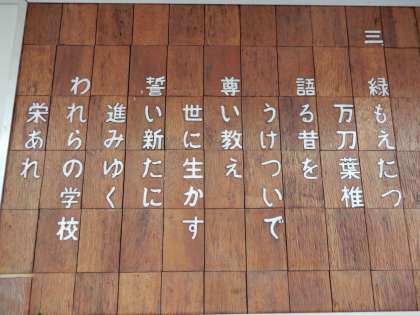 三
緑もえたつ
万刀葉椎
語る昔を
うけついで
尊い教え
世に生かす
誓い新たに
進みゆく
われらの学校
栄あれ